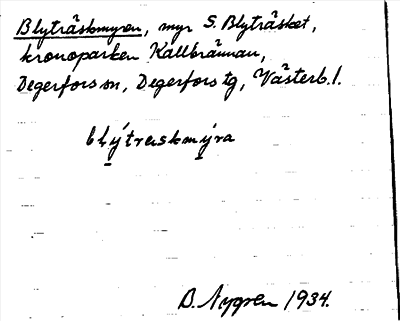 Blyträskmyren, myr S. Blyträsket,
kronoparken Kallbrännan,
Degerfors sn, Degerfors tg, Västerb. l.
blýtraskmýra
B. Nygren 1934.